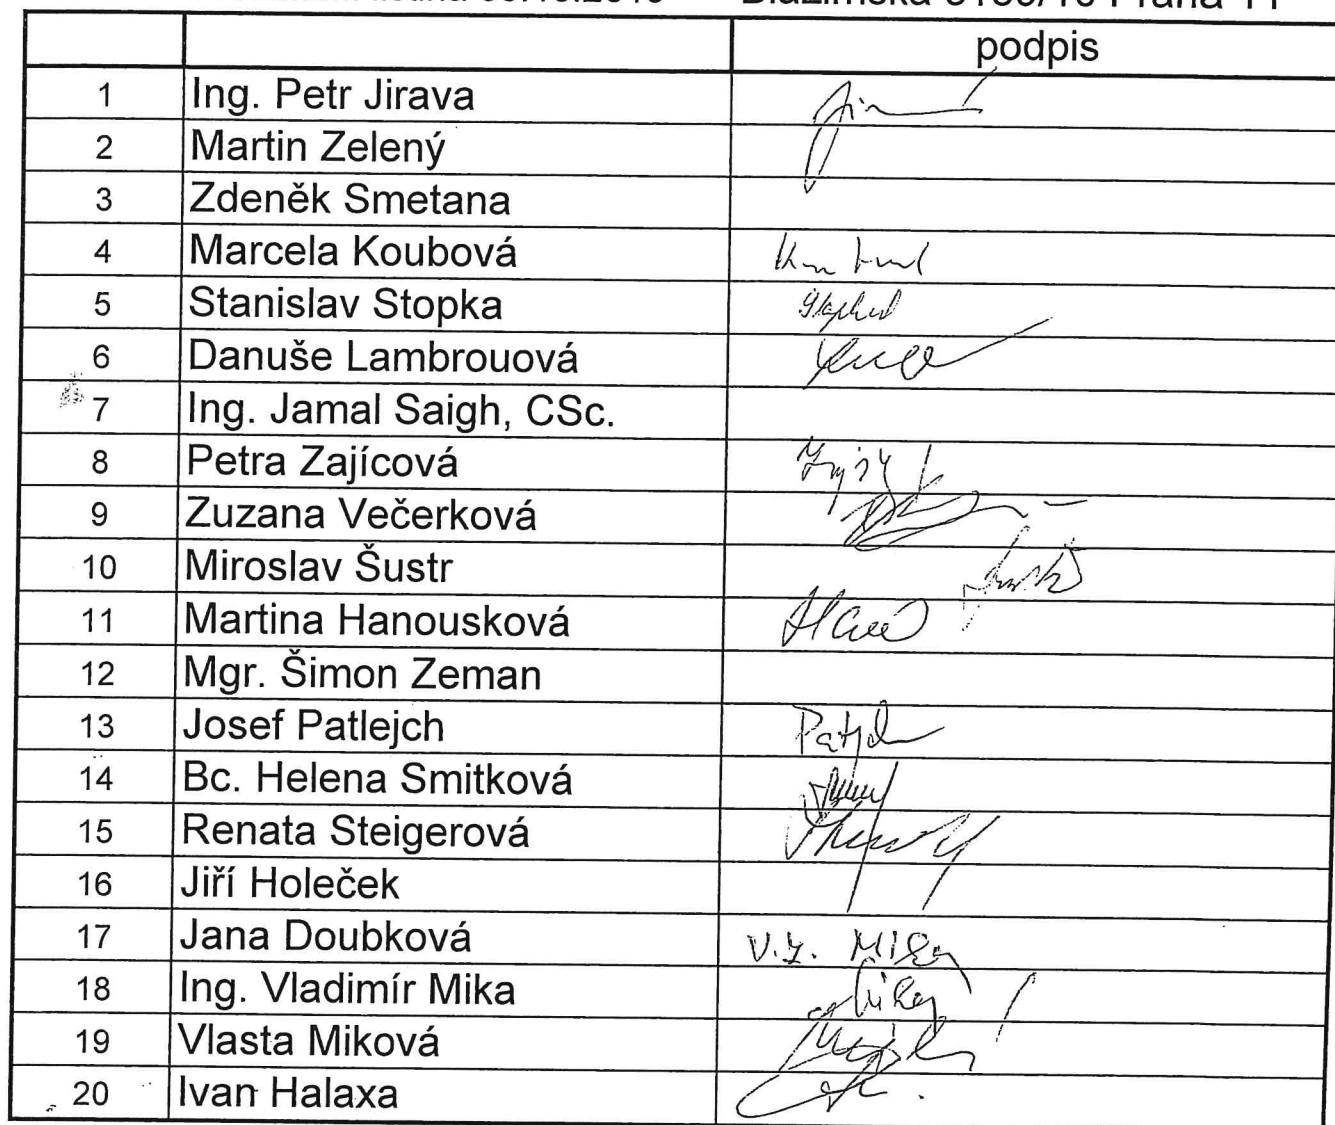 podpis
1 Ing. Petr Jirava
2 Martin Zelený
3 Zdeněk Smetana
4 Marcela Koubová
5 Stanislav Stopka
6 Danuše Lambrouová
7 Ing. Jamal Saigh, CSc.
8 Petra Zajícová
9 Zuzana Večerková
10 Miroslav Šustr
11 Martina Hanousková
12 Mgr. Šimon Zeman
13 Josef Patlejch
14 Bc. Helena Smitková
15 Renata Steigerová
16 Jiří Holeček
17 Jana Doubková
18 Ing. Vladimír Mika
19 Vlasta Miková
20 Ivan Halaxa